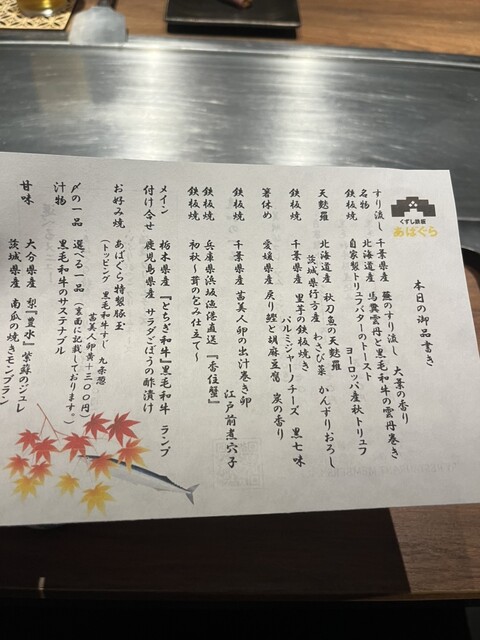 くずし鉄板
あばぐら
本日の御品書き
すり流し 千葉県産 蕪のすり流し 大葉の香り
名物 北海道産 馬糞雲丹と黒毛和牛の雲丹巻き
鉄板焼 自家製トリュフバターのトースト
ヨーロッパ産秋トリュフ
天麩羅 北海道産 秋刀魚の天麩羅 かんずりおろし
茨城県行方産 わさび菜
鉄板焼 千葉県産 里芋の鉄板焼き
パルミジャーノチーズ 黒七味
箸休め 愛媛県産 戻り鰹と胡麻豆腐 炭の香り
鉄板焼 千葉県産 菖美人卵の出汁巻き卵
江戸前煮穴子
鉄板焼 兵庫県浜坂漁港直送 『香住蟹』
鉄板焼 初秋〜茸の包み仕立て〜
メイン 栃木県産 『とちぎ和牛』黒毛和牛 ランプ
付け合せ 鹿児島県産 サラダごぼうの酢漬け
お好み焼 あばぐら特製豚玉
(トッピング 黒毛和牛すじ 九条葱
菖美人卵黄+300円)
〆の一品 選べる一品(裏面に記載しております。)
汁物 黒毛和牛のサステナブル
甘味 大分県産 梨『豊水』 紫蘇のジュレ
茨城県産 南瓜の焼きモンブラン